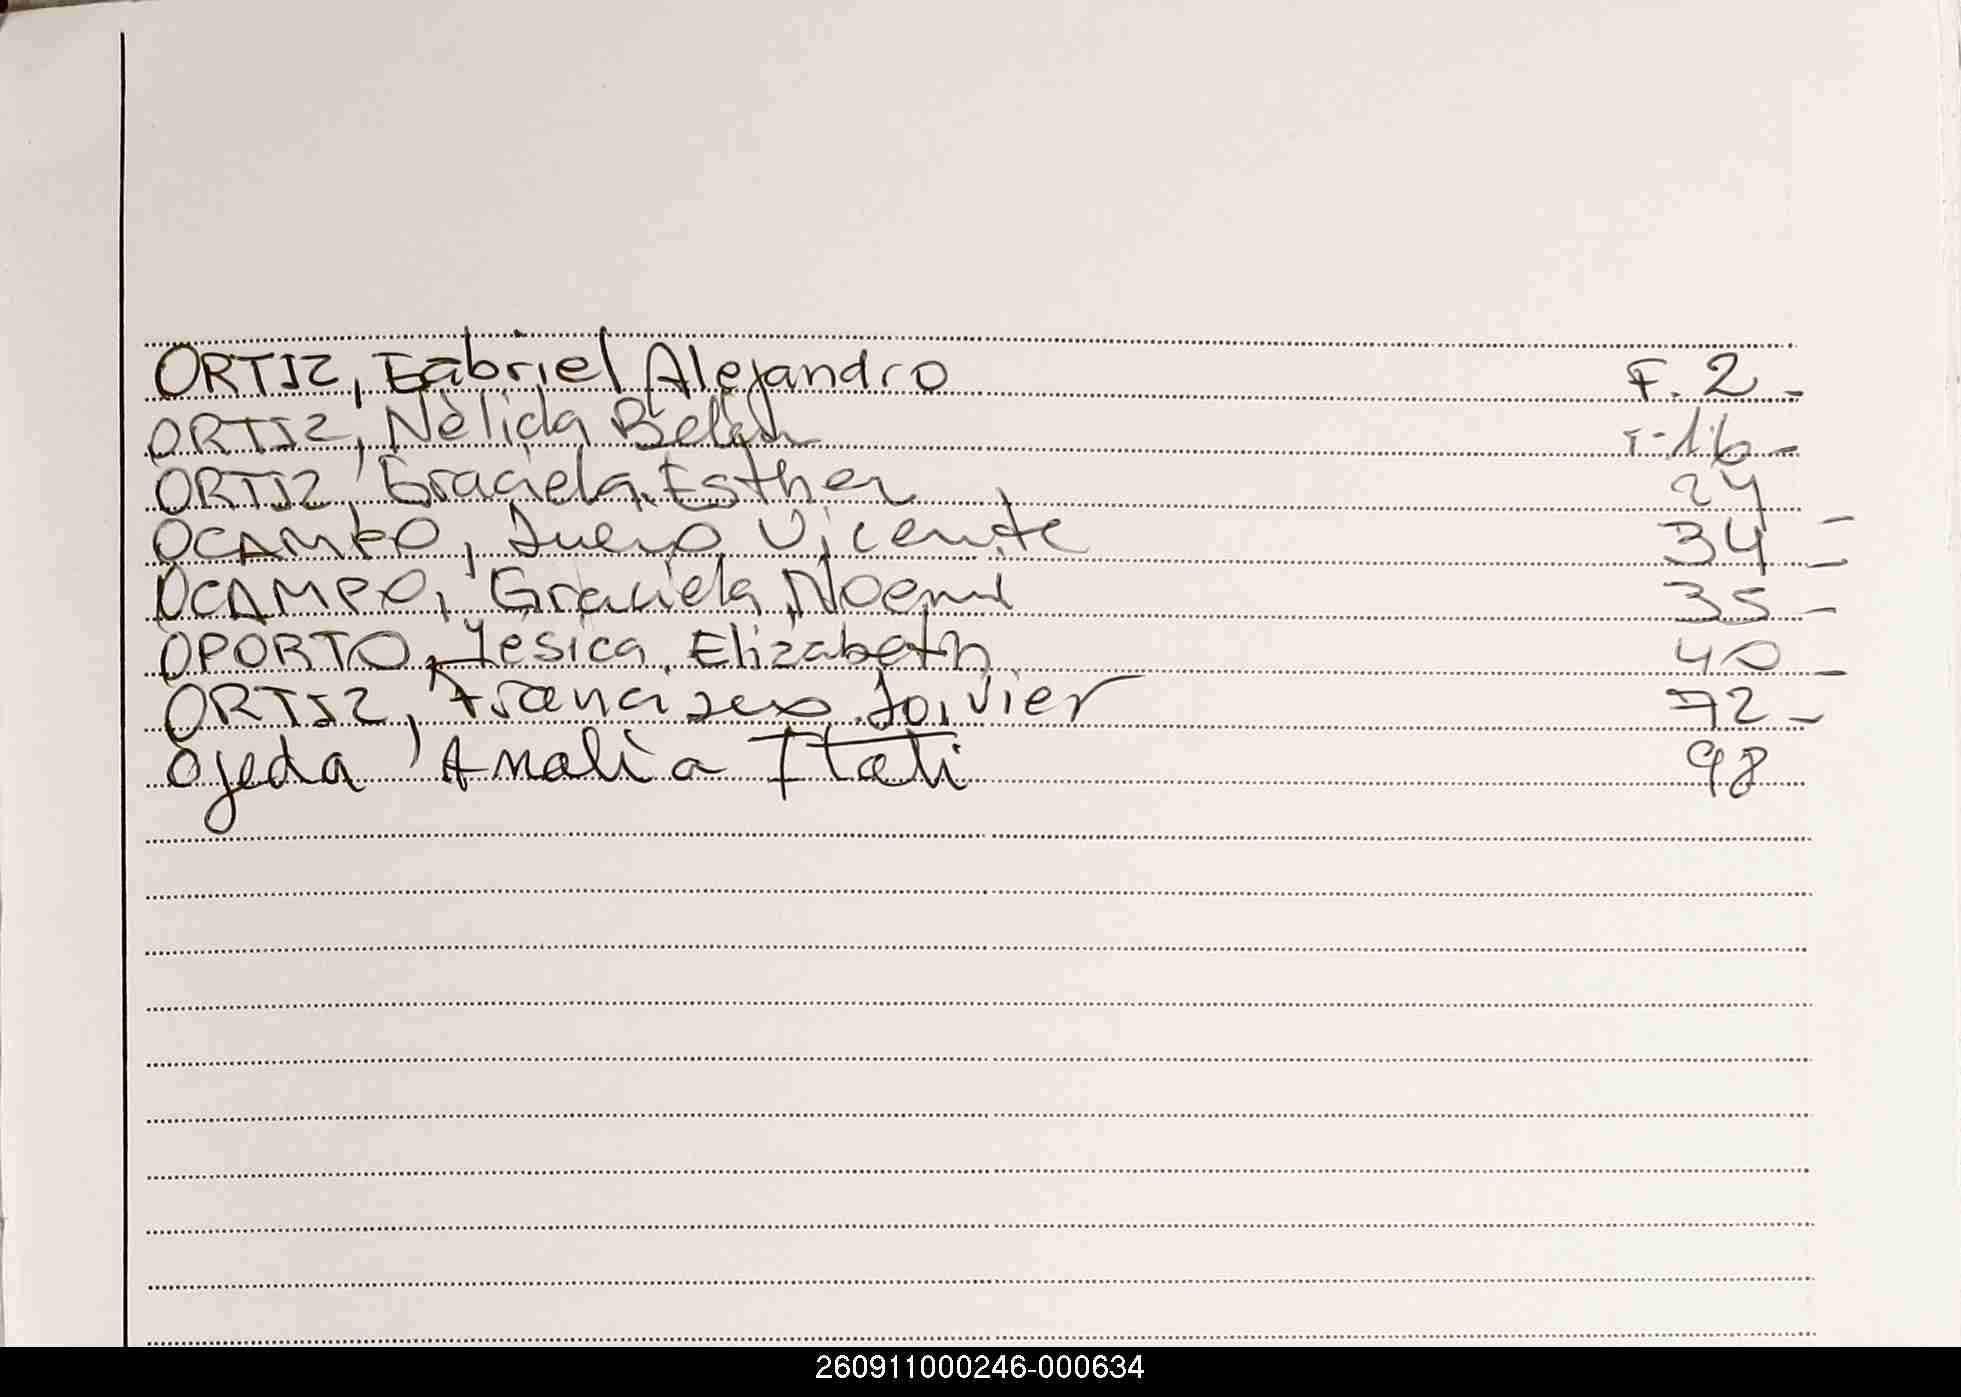 ORTIZ, Gabriel Alejandro F. 2 -
ORTIZ, Nèlida Belén F-16 -
ORTIZ, Graciela Esther 24
OCAMPO, Vicente 34 -
OCAMPO, Graciela Noemi 35 -
OPORTO, Yesica Elizabeth 40 -
ORTIZ, Francisco Javier 72 -
Ojeda, Amalia Itati 98
260911000246-000634